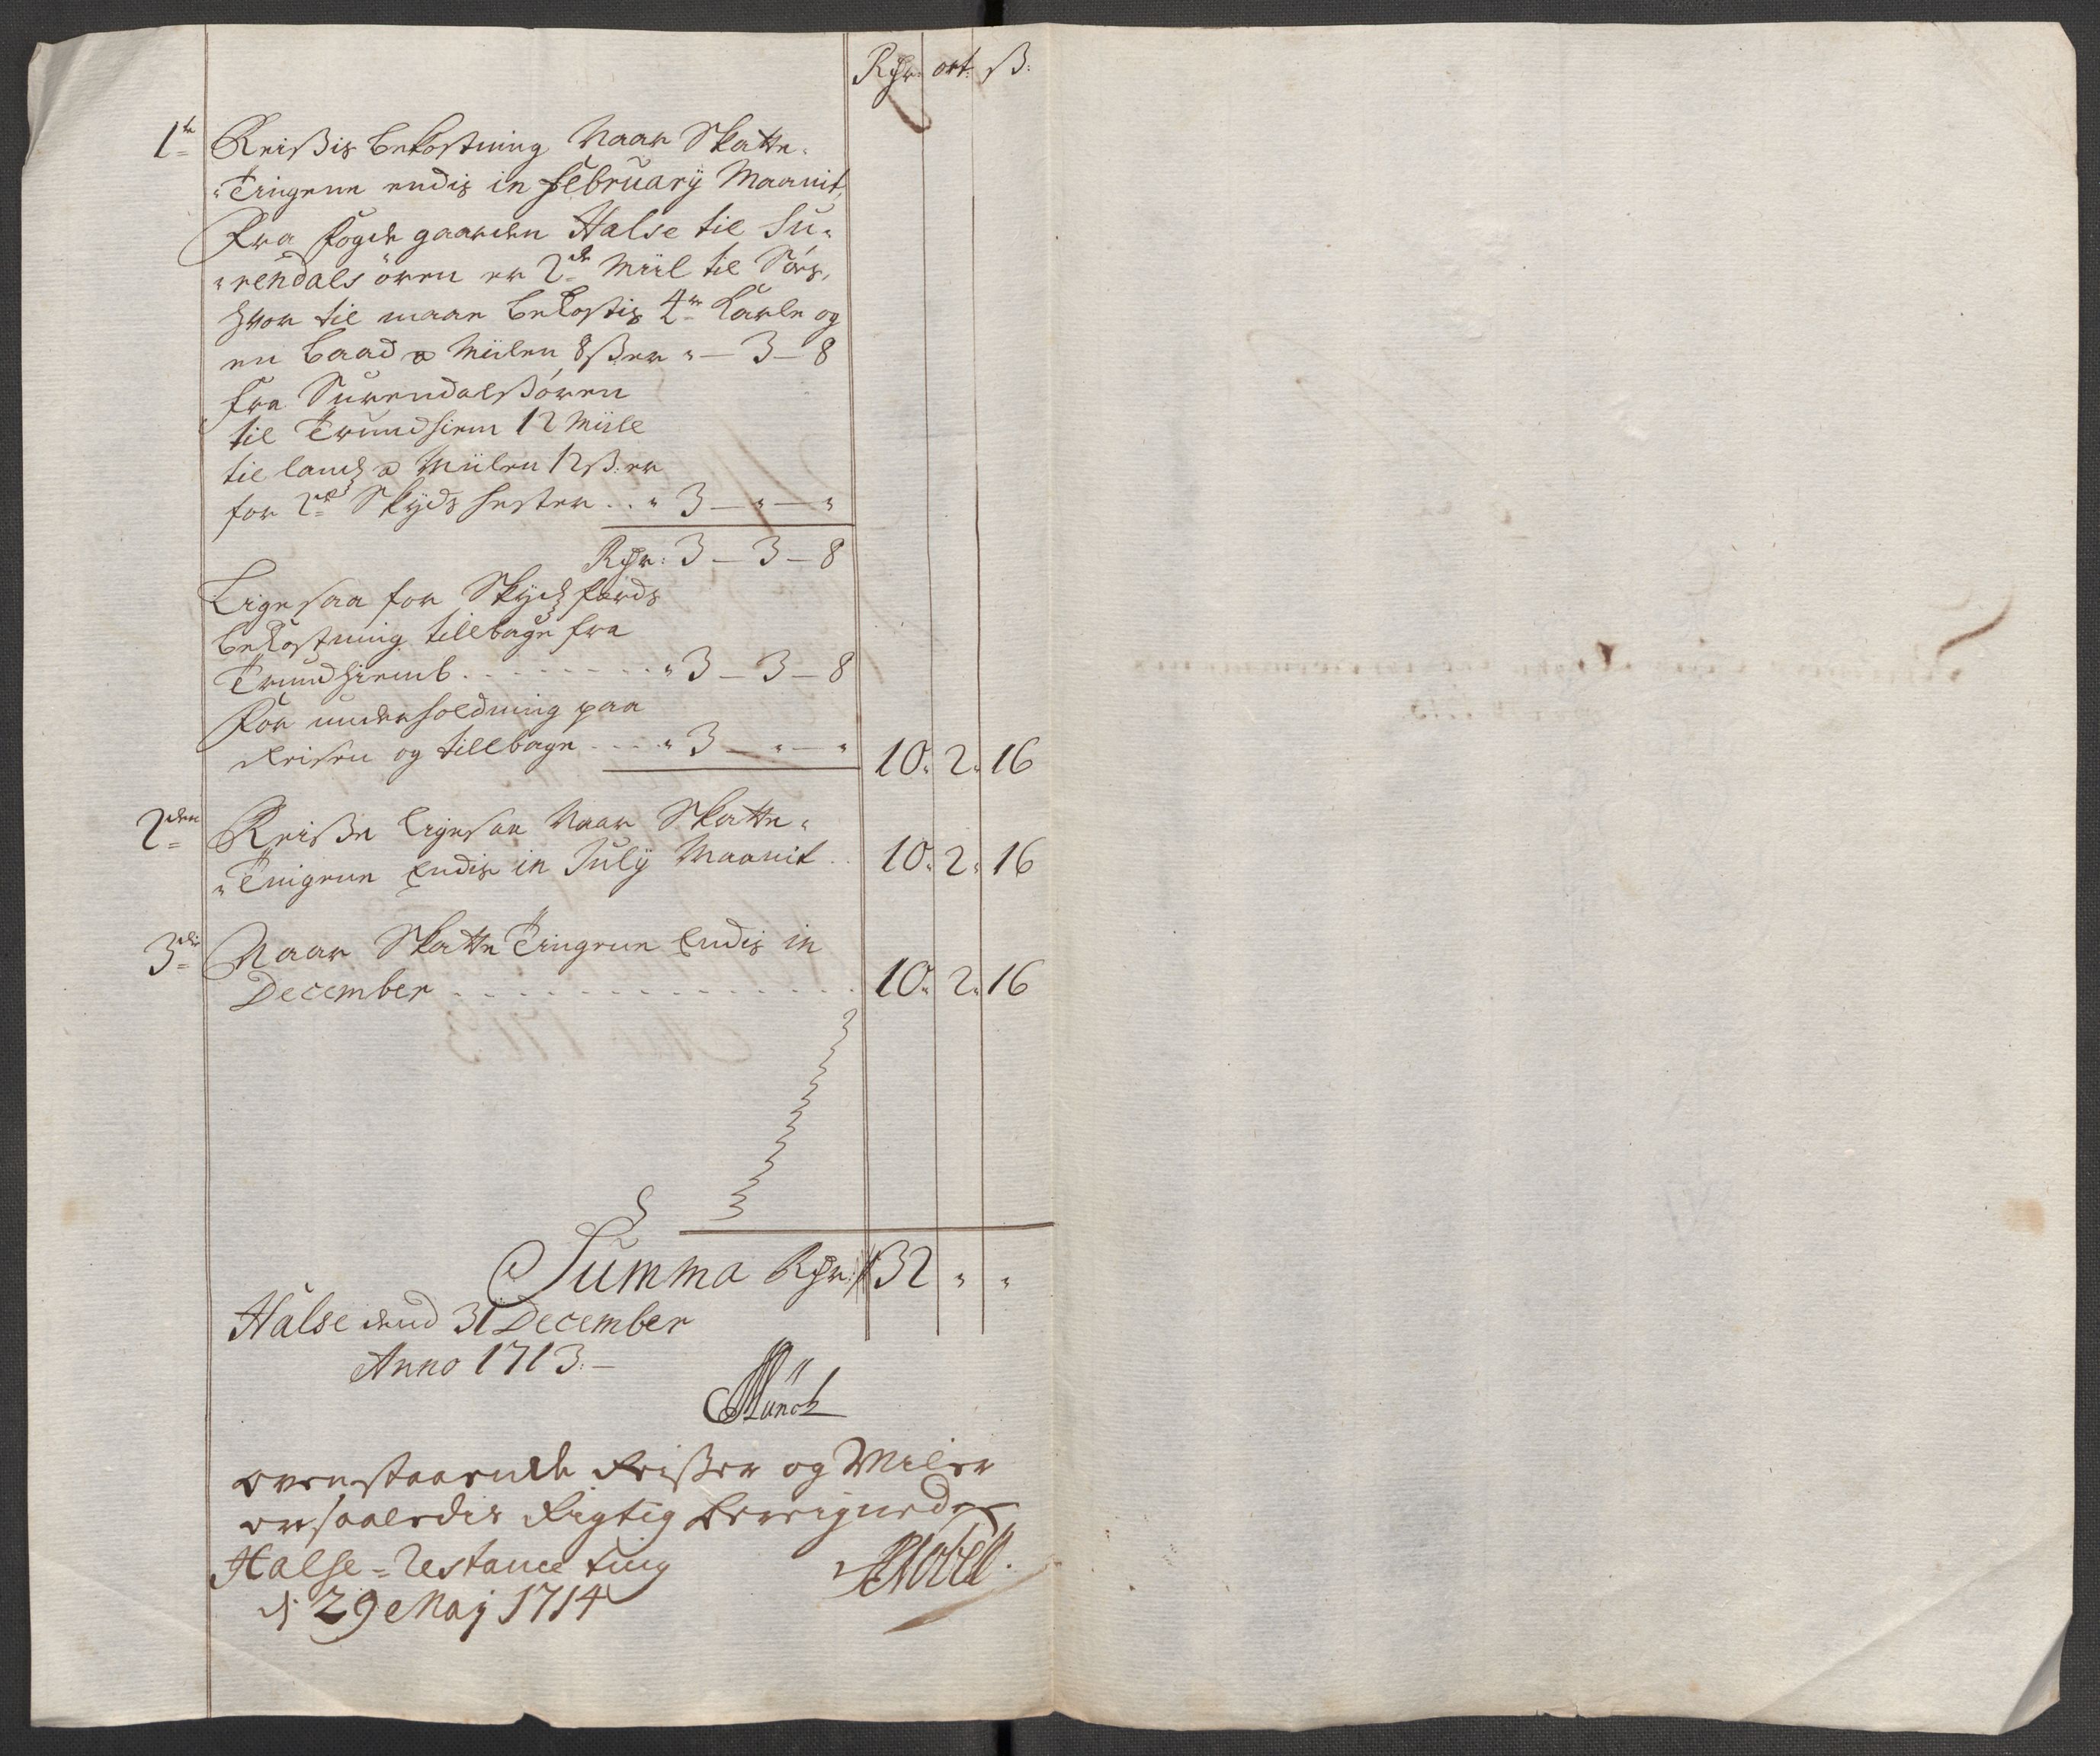 Rdr: ort: ß:
1te Reißis bekostning Naar Skatte-
Tingene endis in February Maanit,
Fra fogde gaarden Halse til Su-
rendals ören er 2de Miil til Søes,
hvor til maae bekostis 4re Karle og
en baad a Miilen 8ß er " - 3 - 8
fra Surendalsören
til Trundhiem 12 Miile
til lands a Miilen 12ß: er
for 2de Skyds hester .. " 3 - " - "
Rdr: 3 - 3 - 8
Ligesaa for Skydsferds
bekostning tillbage fra
Trundhiemb . . . . . . " 3 - 3 - 8
For underholdning paa
Reisen og tillbage . . . " 3 - " - " 10. 2. 16
2den Reiße ligesaa Naar Skatte-
Tingene Endis in July Maanit .. 10. 2. 16
3die Naar Skatte Tingene Endis in
December . . . . . . . . 10. 2. 16
Summa Rdr: 32 " "
Halse dend 31 December
Anno 1713. -
Münch
Ovenstaaende Reißer og Miler
er saaledis Rigtig beregnede
Halse - Restance ting
d: 29 Maij 1714